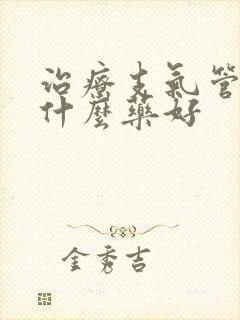 治療支氣管
什麼藥好
金秀吉